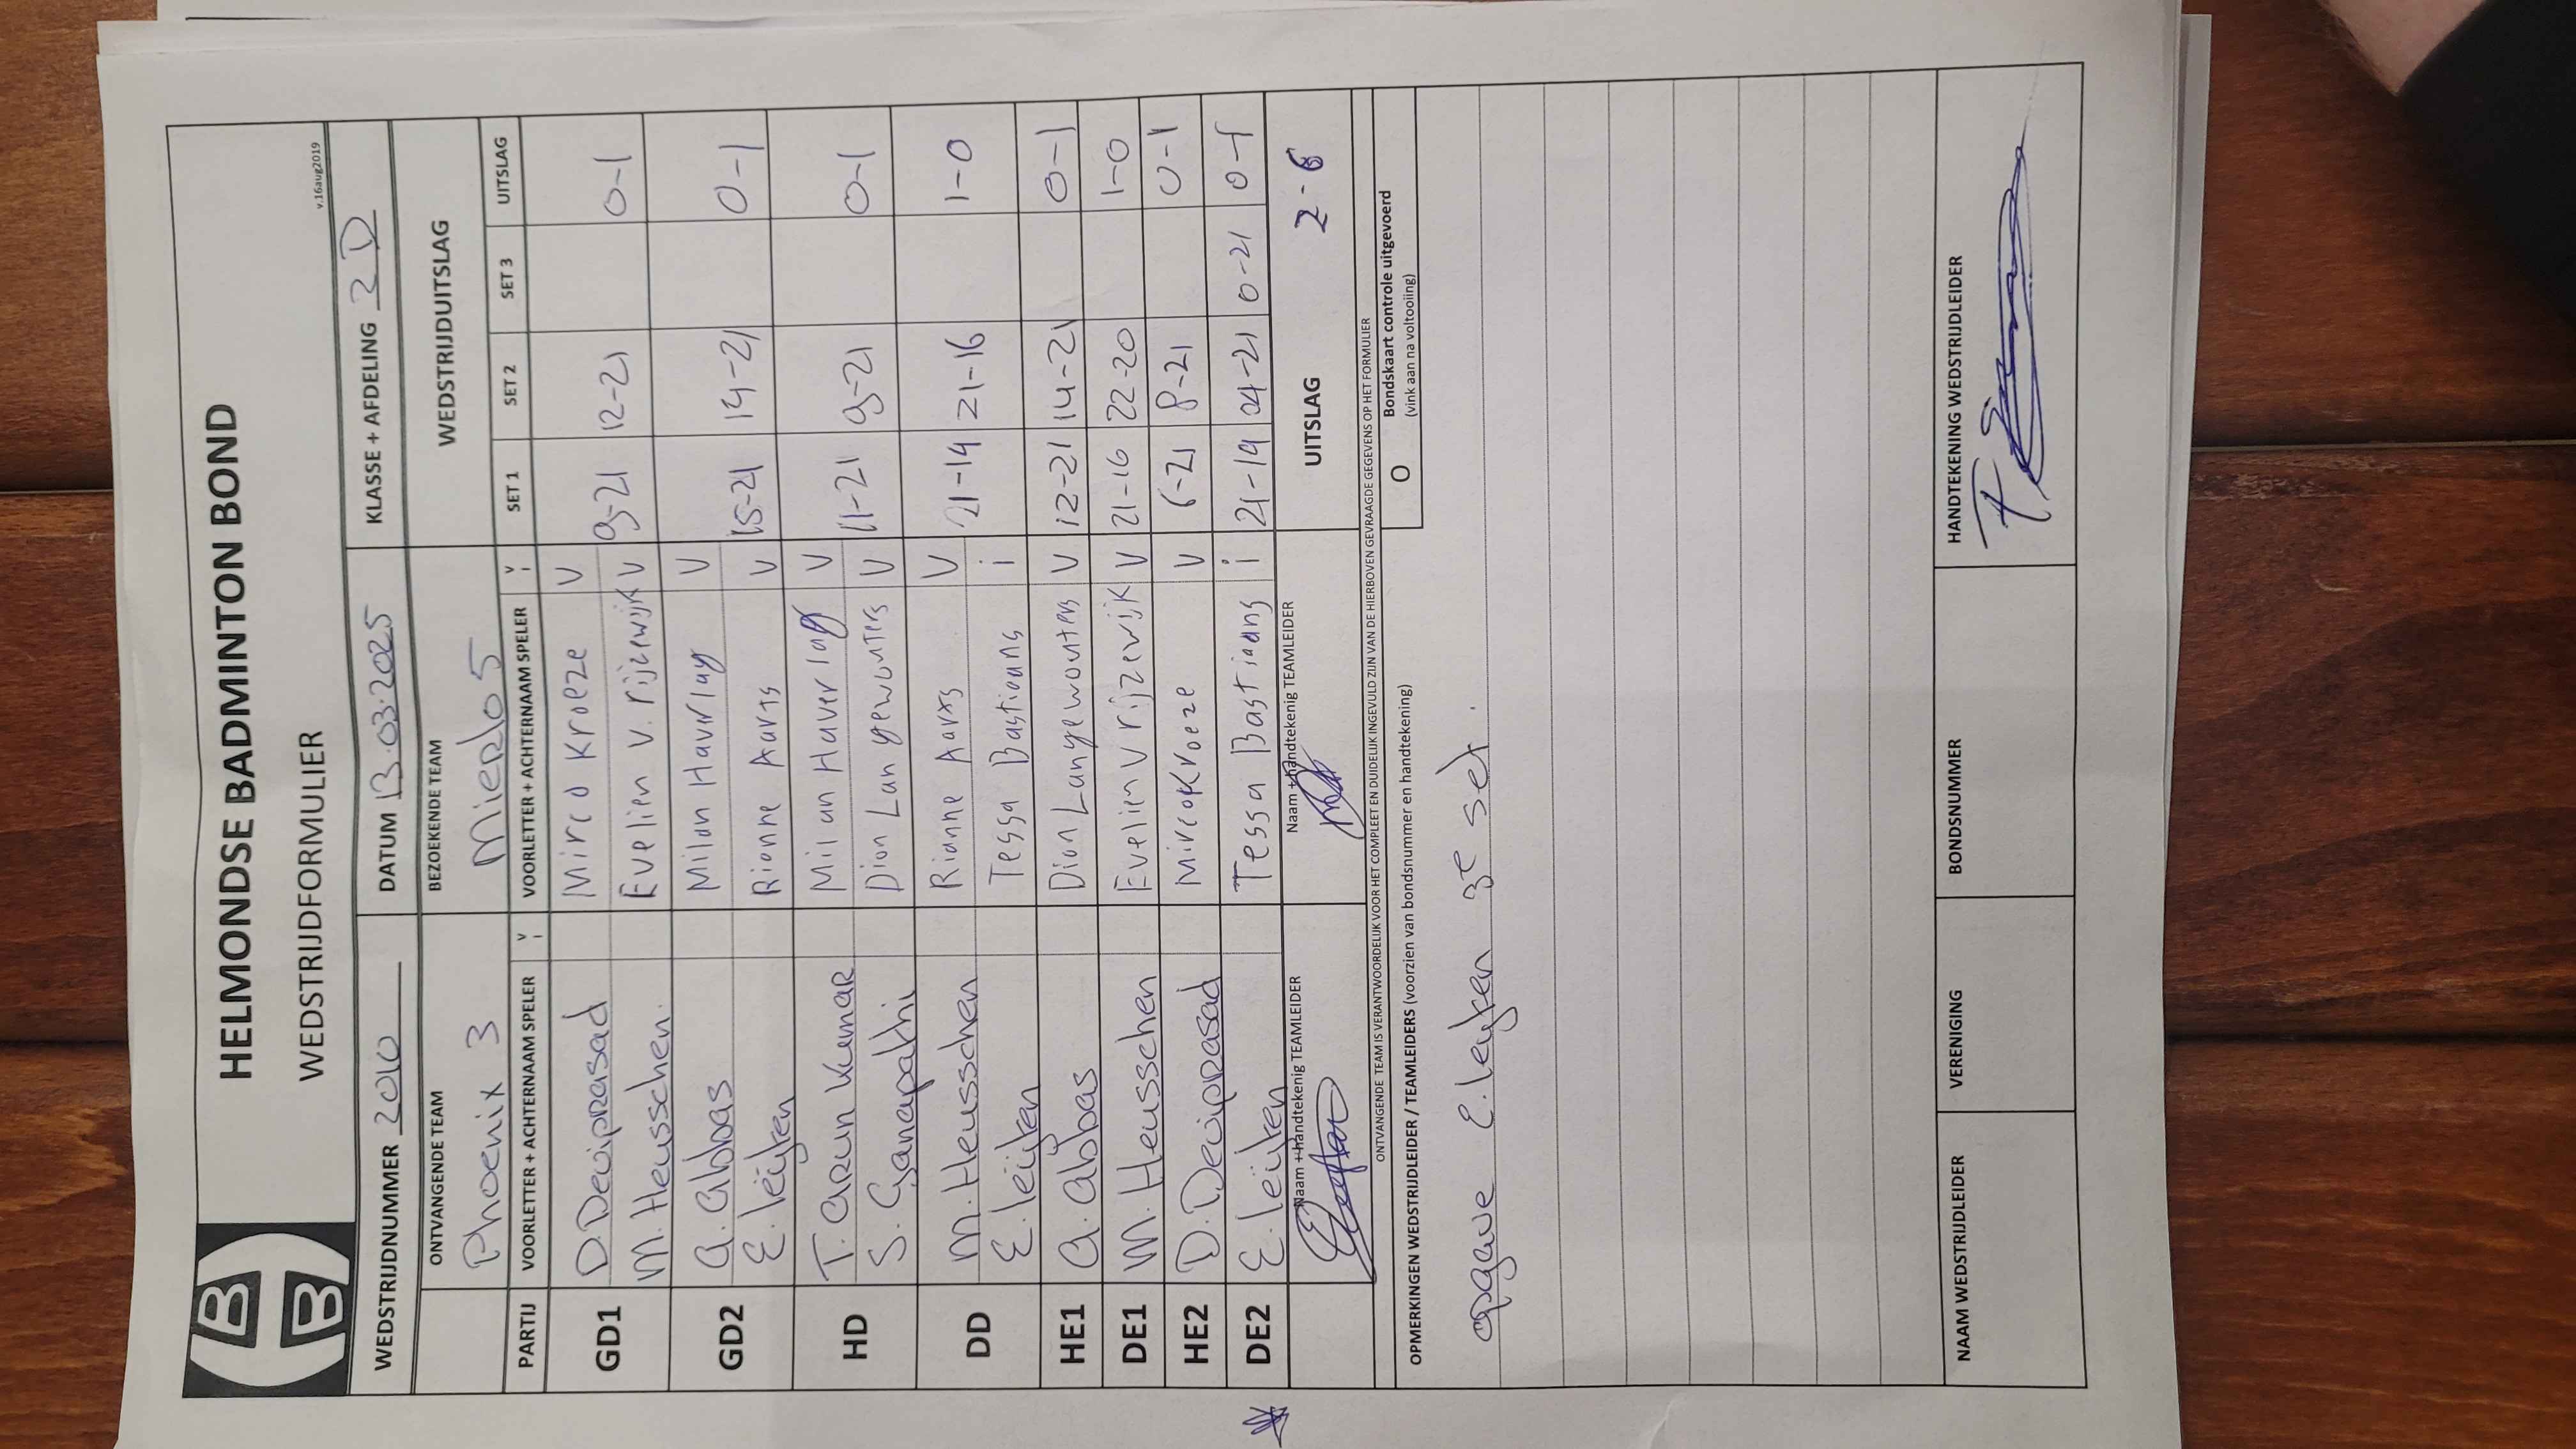 HELMONDSE BADMINTON BOND
WEDSTRIJDFORMULIER
v.16aug2019
WEDSTRIJDNUMMER 2010 DATUM 13.03.2025 KLASSE + AFDELING 2D
ONTVANGENDE TEAM BEZOEKENDE TEAM WEDSTRIJDUITSLAG
Phoenix 3 Mierlo 5
PARTIJ VOORLETTER + ACHTERNAAM SPELER V I VOORLETTER + ACHTERNAAM SPELER V I SET 1 SET 2 SET 3 UITSLAG
GD1 D. Deviprasad Mirco Kroeze V
M. Heusschen Evelien v. rijzewijk V 9-21 12-21 0-1
GD2 A. Abbas Milan Haverlag V
E. leijten Rianne Aarts V 15-21 14-21 0-1
HD T. Arun Kumar Milan Haverlag V
S. Ganapathi Dion Langewouters V 11-21 9-21 0-1
DD M. Heusschen Rianne Aarts V
E. leijten Tessa Bastiaans i 21-14 21-16 1-0
HE1 A. Abbas Dion Langewouters V 12-21 14-21 0-1
DE1 M. Heusschen Evelien v rijzewijk V 21-16 22-20 1-0
HE2 D. Deviprasad Mirco Kroeze V 6-21 8-21 0-1
DE2 E. leijten Tessa Bastiaans i 21-19 21 0-21 0-1
Naam + handtekenig TEAMLEIDER Naam + handtekenig TEAMLEIDER UITSLAG 2-6
ONTVANGENDE TEAM IS VERANTWOORDELIJK VOOR HET COMPLEET EN DUIDELIJK INGEVULD ZIJN VAN DE HIERBOVEN GEVRAAGDE GEGEVENS OP HET FORMULIER
OPMERKINGEN WEDSTRIJDLEIDER / TEAMLEIDERS (voorzien van bondsnummer en handtekening)
O Bondskaart controle uitgevoerd
(vink aan na voltooiing)
opgave E. leijten 3e set.
NAAM WEDSTRIJDLEIDER VERENIGING BONDSNUMMER HANDTEKENING WEDSTRIJDLEIDER